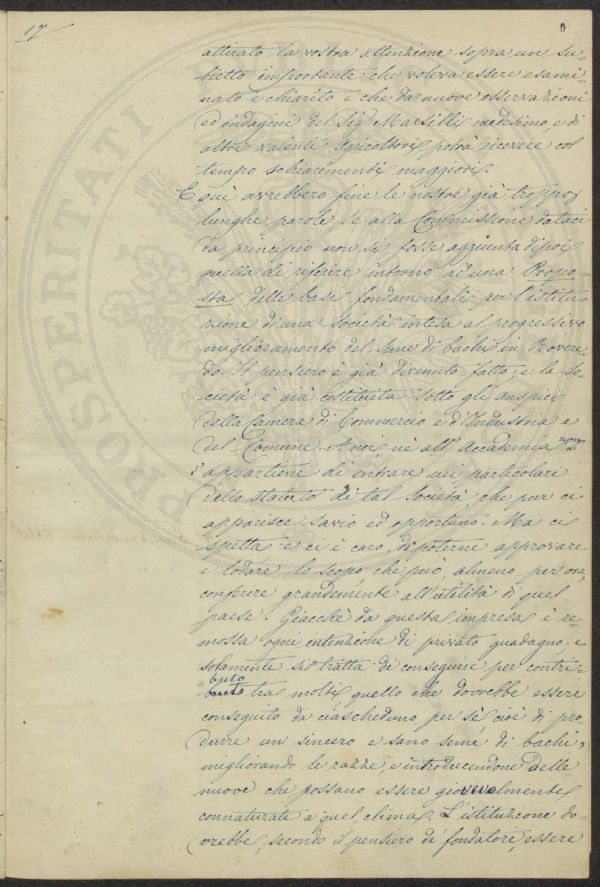 17
attirato la vostra attenzione sopra un su-
bietto importante che voleva essere esami-
nato e chiarito, e che da nuove osservazioni
ed indagini del Sig. Marsilli medesimo, e di
altri valenti Agricoltori, potrà ricevere col
tempo schiarimenti maggiori.
E quì avrebbero fine le nostre già troppo
lunghe parole, se alla Commissione dataci
da principio non si fosse aggiunta dipoi
quella di riferire intorno ad una Propo-
sta delle basi fondamentali per l'istitu-
zione di una Società intesa al progressivo
miglioramento del Seme di bachi in Rovere-
do. Il pensiero è già divenuto fatto; e la So-
cietà è già costituita sotto gli auspici
della Camera di Commercio e d'Industria e
del Comune. A noi nè all'Accademia non
s'appartiene di entrare nei particolari
dello statuto di tal Società, che pur ci
apparisce savio ed opportuno. Ma ci
spetta e ci è caro, di poterne approvare
e lodare lo scopo che può, almeno per ora,
conferire grandemente all'utilità di quel
paese. Giacchè da questa impresa è re-
mossa ogni intenzione di privato guadagno; e
solamente si tratta di conseguire per contri-
buto tra molti quello che dovrebbe essere
conseguito da ciascheduno per sè cioè di pro
durre un sincero e sano seme di bachi,
migliorando le razze, e introducendone delle
nuove che possano essere giovevolmente
connaturate a quel clima. L'istituzione do-
vrebbe, secondo il pensiero de' fondatori, essere
PROSPERITATI
PUBLI